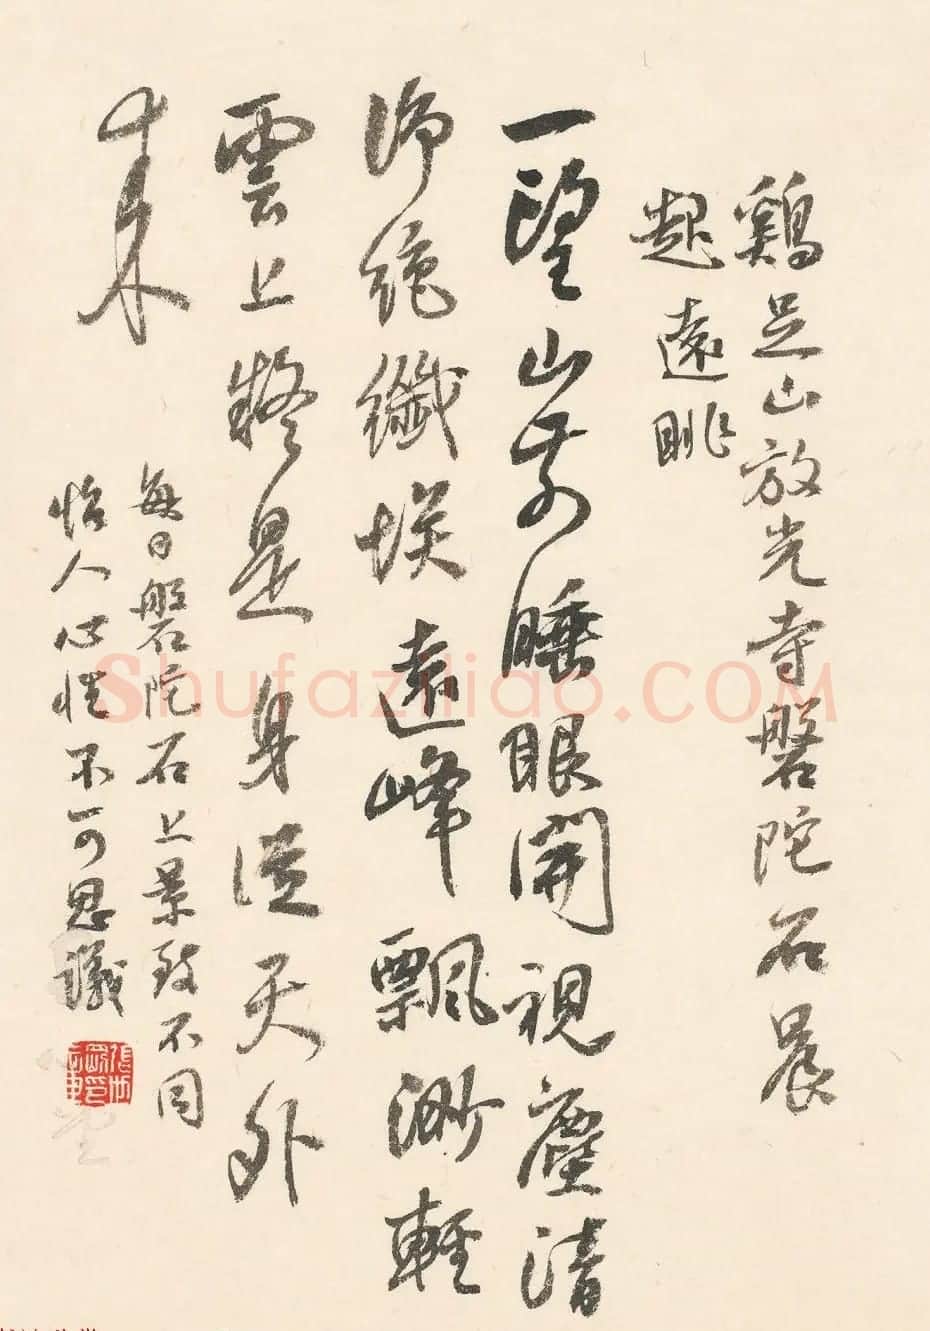 鷄足山放光寺磐陀石晨
起遠眺
一望山前睡眼開視塵清
淨絶纖埃遠峰飄渺輕
雲上疑是身從天外
來
每日磐陀石上景致不同
怡人心性不可思議
Shufaziliao.COM